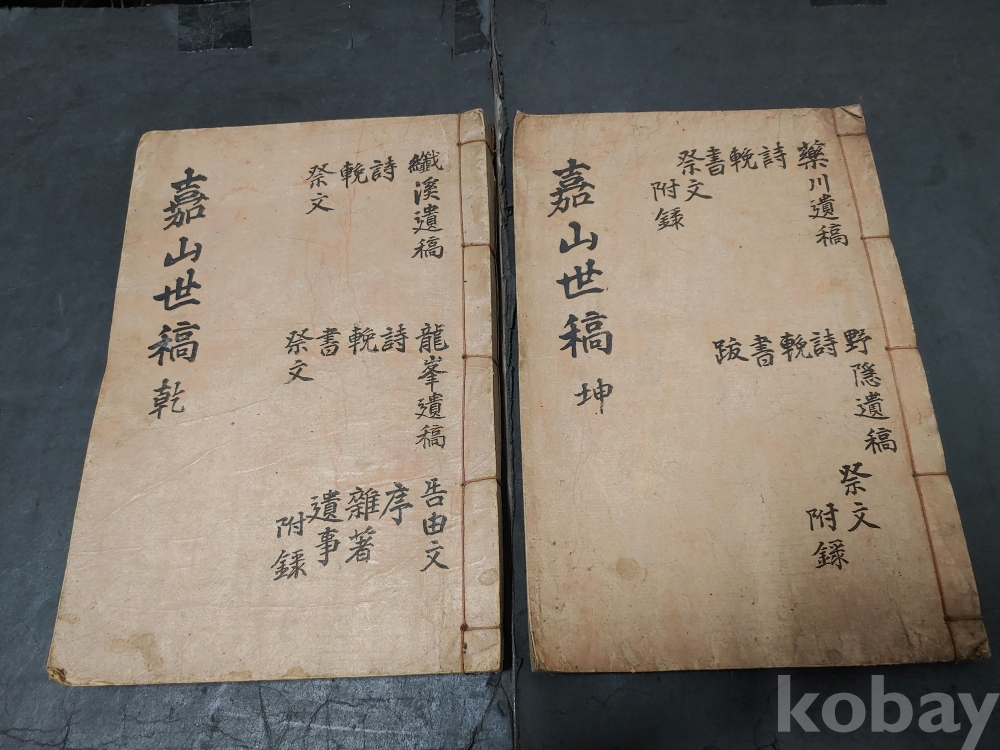 纖溪遺稿
詩
輓
祭文
龍峯遺稿
詩
輓
書
祭文
告由文
序
雜著
遺事
附錄
嘉山世稿 乾
藥川遺稿
詩
輓
書
祭文
附錄
野隱遺稿
詩
輓
書
跋
祭文
附錄
嘉山世稿 坤
kobay